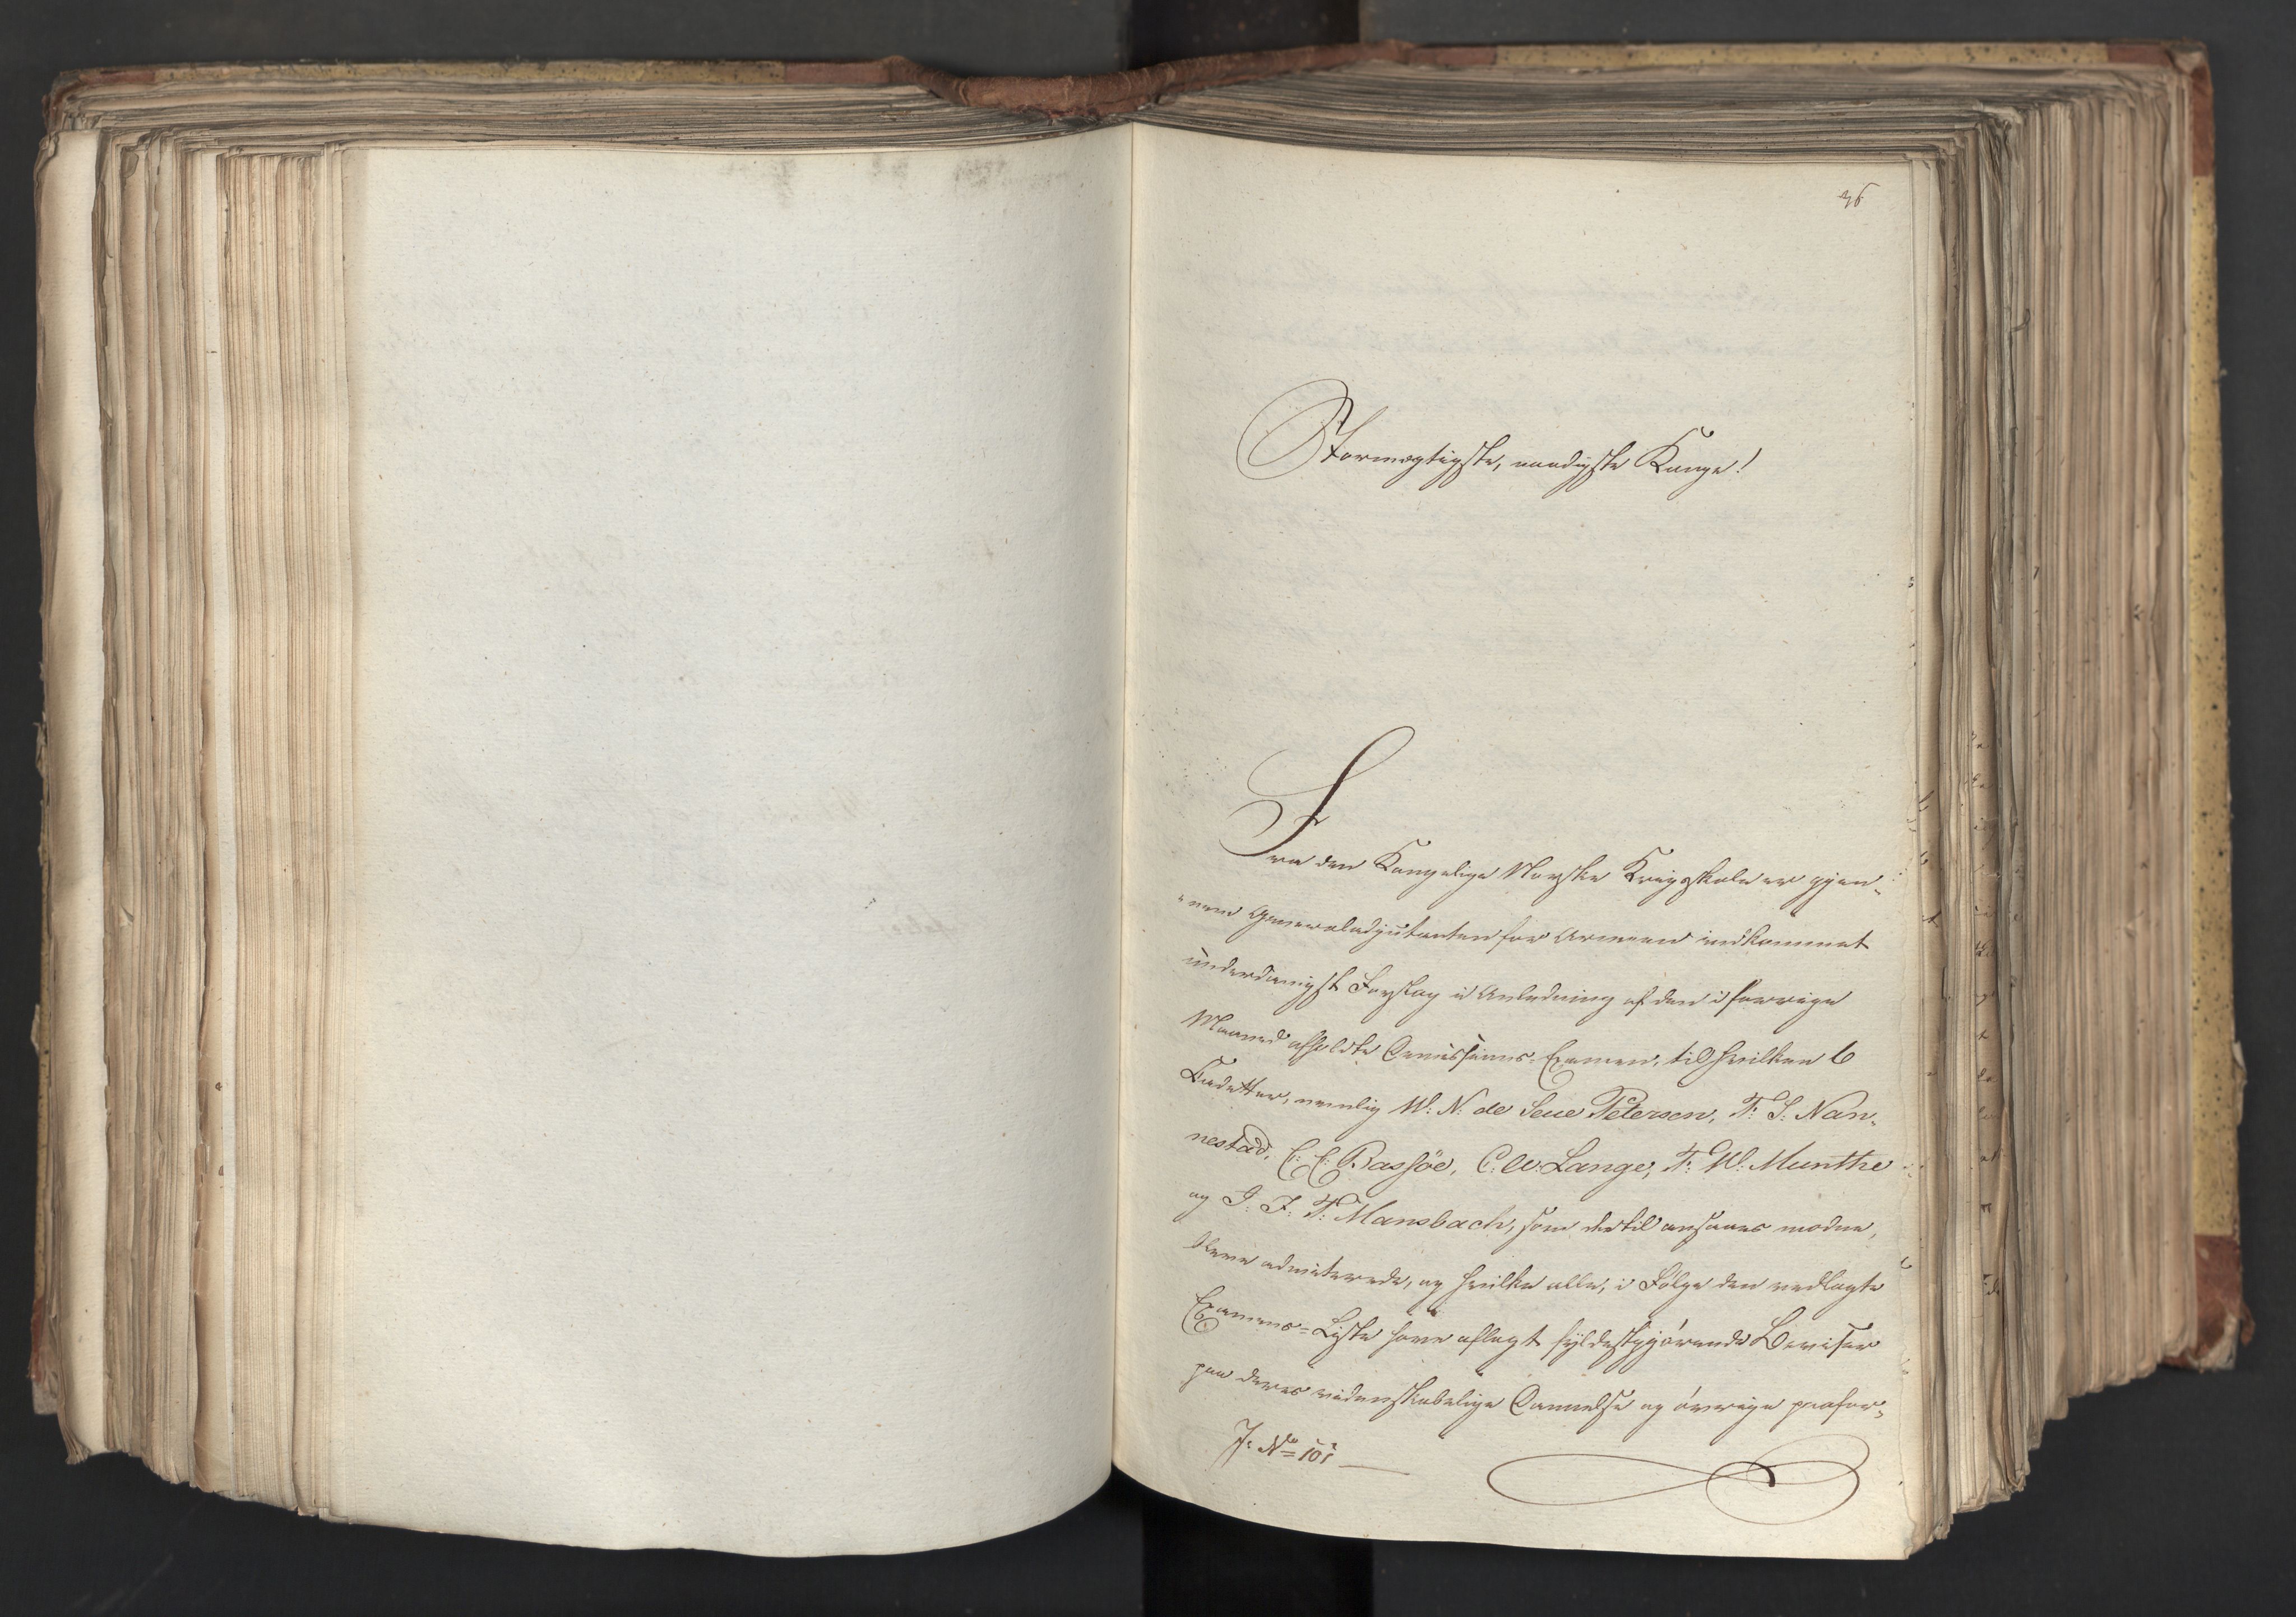 36
Stormægtigste, naadigste Konge!
Fra den Kongelige Norske Krigsskole er gjen-
nem Generaladjutanten for Armeen indkommet
underdanigst Forslag i Anledning af den i forrige
Maaned afholdte Omissions-Examen, til hvilken 6
Cadetter, nemlig W: N: de Seue Petersen, T: S: Nan-
nestad, C: C: Bassøe, C. W. Lange, T: W: Munthe
og J: J: T: Mansbach, som dertil ansaaes modne,
bleve admitterede, og hvilke alle, i Følge den vedlagte
Examens-Liste have aflagt fyldestgjørende Beviser
paa deres videnskabelige Dannelse og øvrige profes-
J: No 101